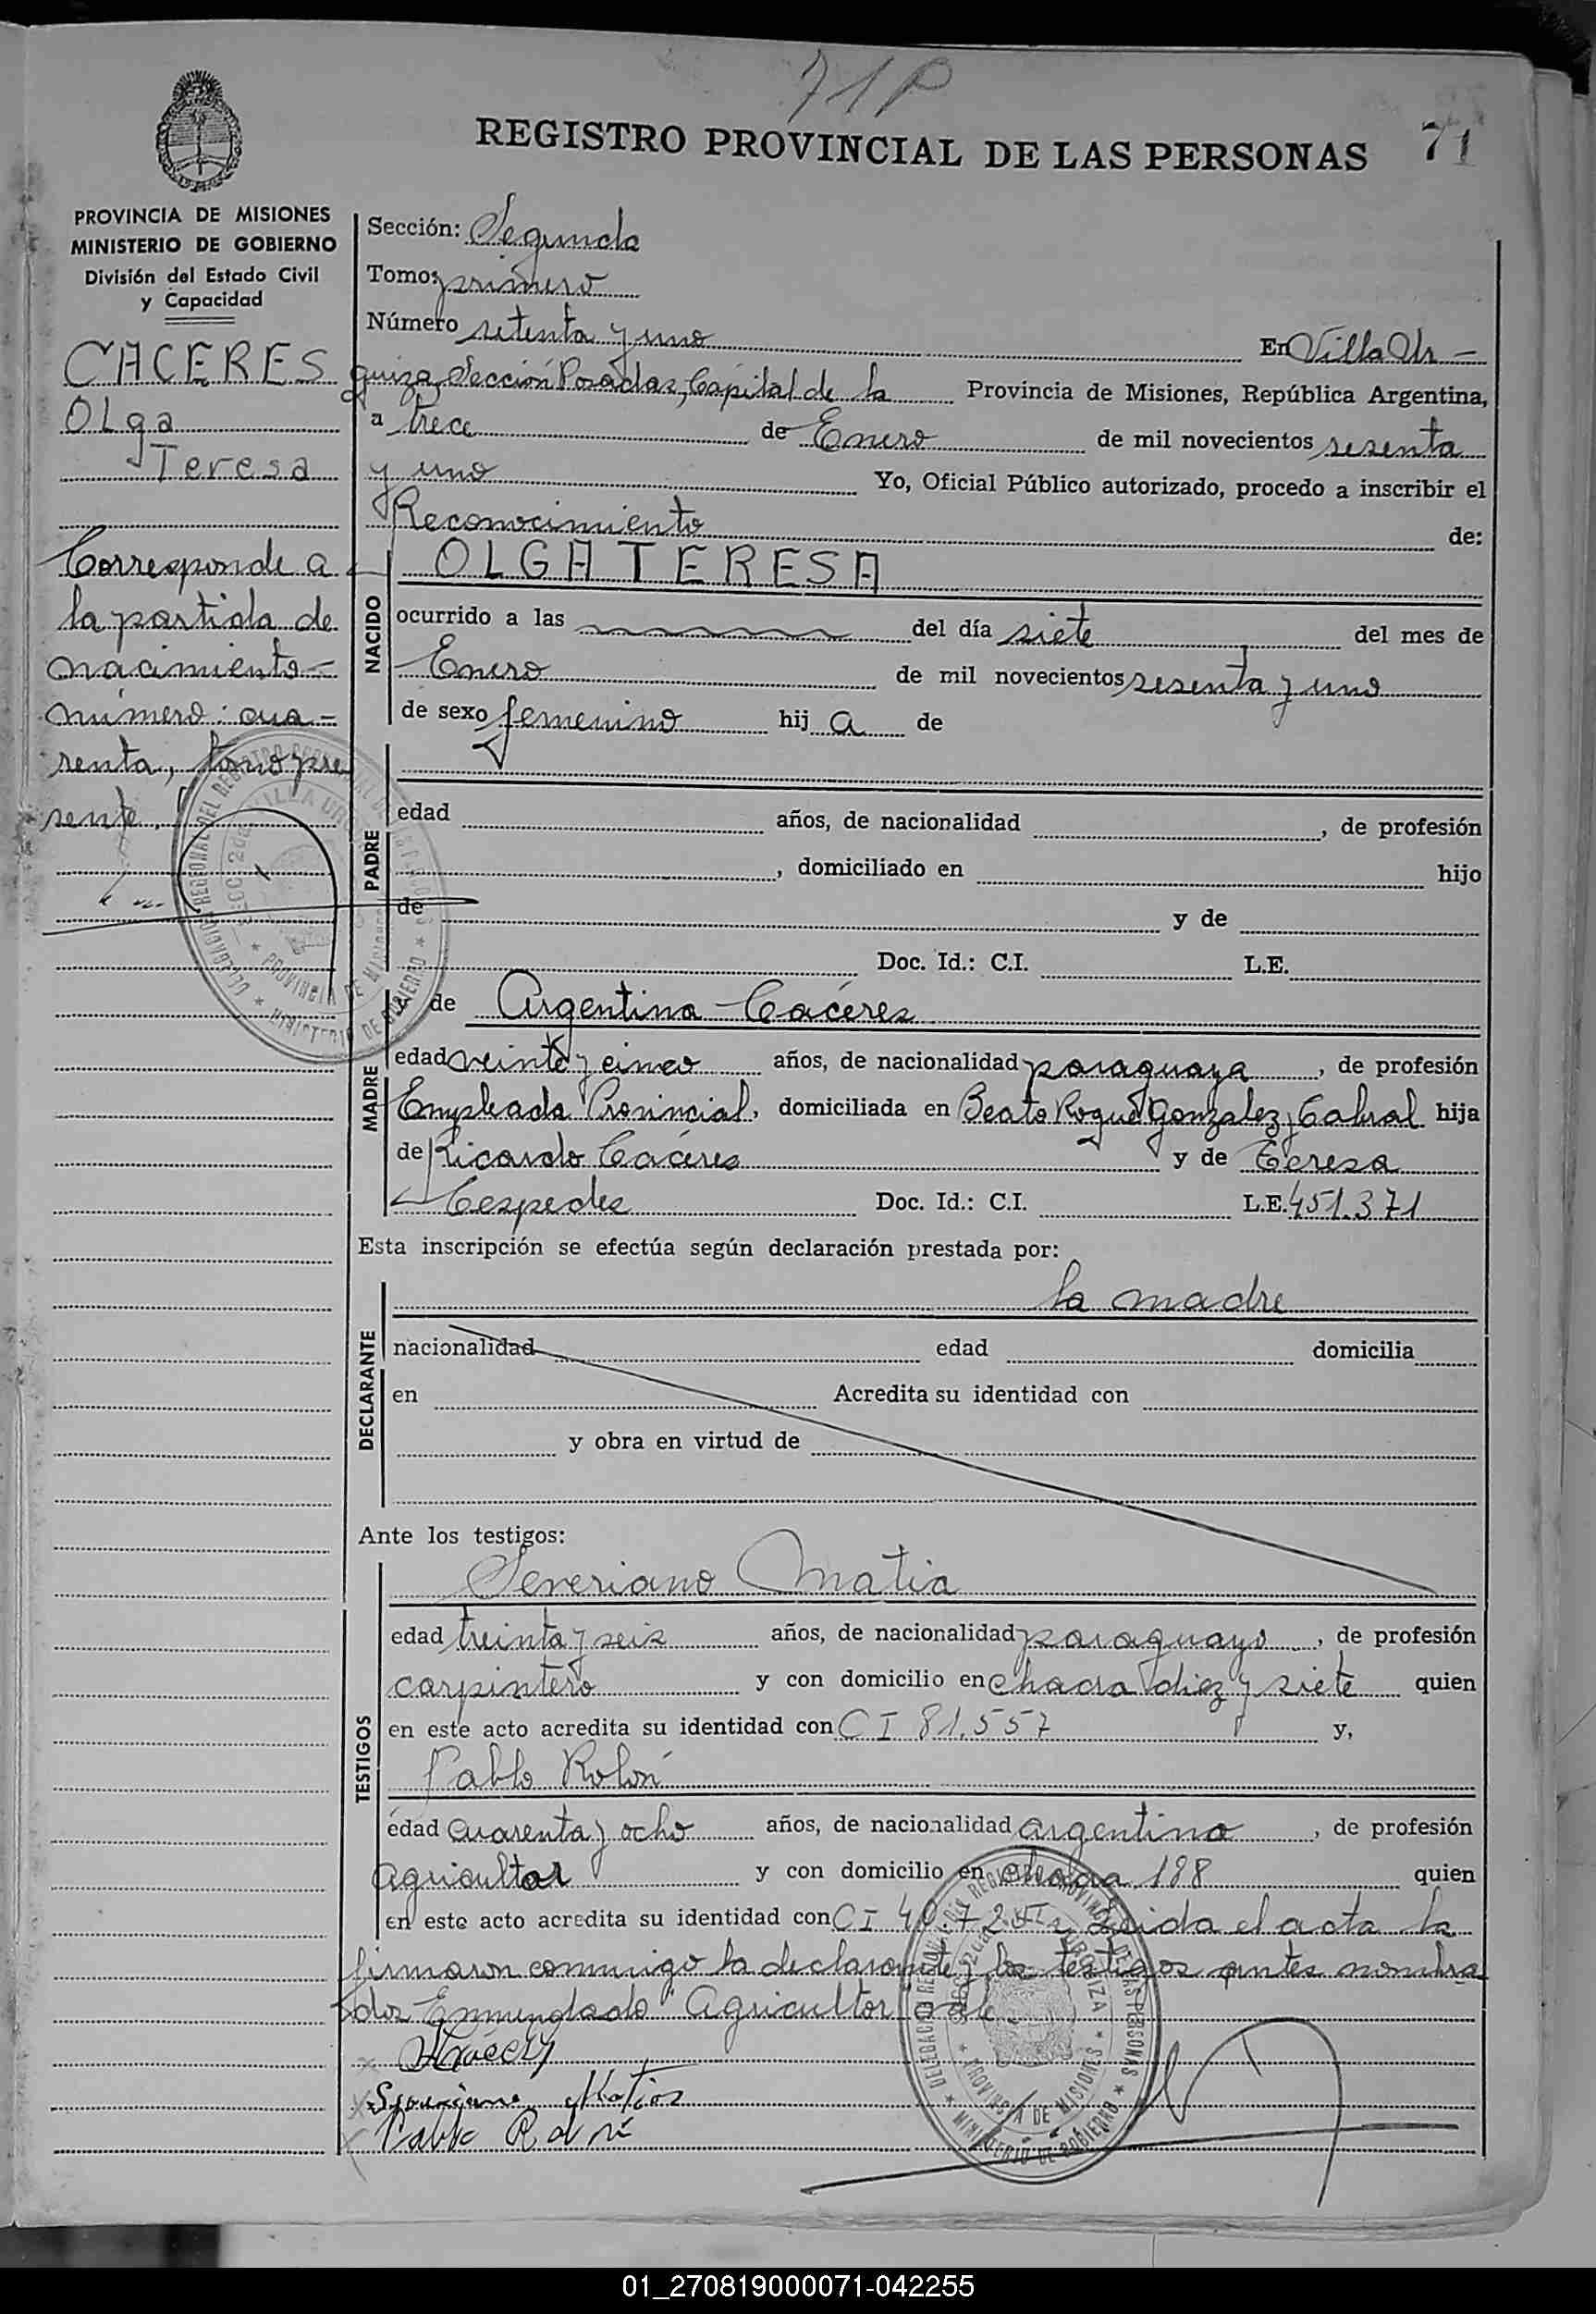 71P
REGISTRO PROVINCIAL DE LAS PERSONAS 71
PROVINCIA DE MISIONES
MINISTERIO DE GOBIERNO
División del Estado Civil
y Capacidad
CACERES
Olga
Teresa
Corresponde a
la partida de
nacimiento
número: cua-
renta, tomo pre
sente.
Sección: Segunda
Tomo: primero
Número setenta y uno En Villa Ur-
quiza, Sección Posadas, Capital de la Provincia de Misiones, República Argentina,
a trece de Enero de mil novecientos sesenta
y uno Yo, Oficial Público autorizado, procedo a inscribir el
Reconocimiento de:
NACIDO
OLGA TERESA
ocurrido a las del día siete del mes de
Enero de mil novecientos sesenta y uno
de sexo femenino hij a de
PADRE
edad años, de nacionalidad , de profesión
, domiciliado en hijo
de y de
Doc. Id.: C.I. L.E.
MADRE
de Argentina Cacéres
edad veinte y cinco años, de nacionalidad paraguaya , de profesión
Empleada Provincial, domiciliada en Beato Roque Gonzalez y Cabral hija
de Ricardo Cacéres y de Teresa
Cespedes Doc. Id.: C.I. L.E. 451.371
Esta inscripción se efectúa según declaración prestada por:
DECLARANTE
la madre
nacionalidad edad domicilia
en Acredita su identidad con
y obra en virtud de
Ante los testigos:
TESTIGOS
Severiano Matia
edad treinta y seis años, de nacionalidad paraguayo , de profesión
carpintero y con domicilio en chacra diez y siete quien
en este acto acredita su identidad con CI 81.557 y,
Pablo Rolón
edad cuarenta y ocho años, de nacionalidad argentino , de profesión
agricultor y con domicilio en chacra 188 quien
en este acto acredita su identidad con CI Leida el acta la
firmaron conmigo la declarante y los testigos antes nombra
dos Enmendado "Agricultor" vale
Severiano Matias
Pablo Rolón
DELEGACION REGIONAL DEL REGISTRO PROVINCIAL DE LAS PERSONAS
SECC. 2da. VILLA URQUIZA
PROVINCIA DE MISIONES
MINISTERIO DE GOBIERNO
01_270819000071-042255